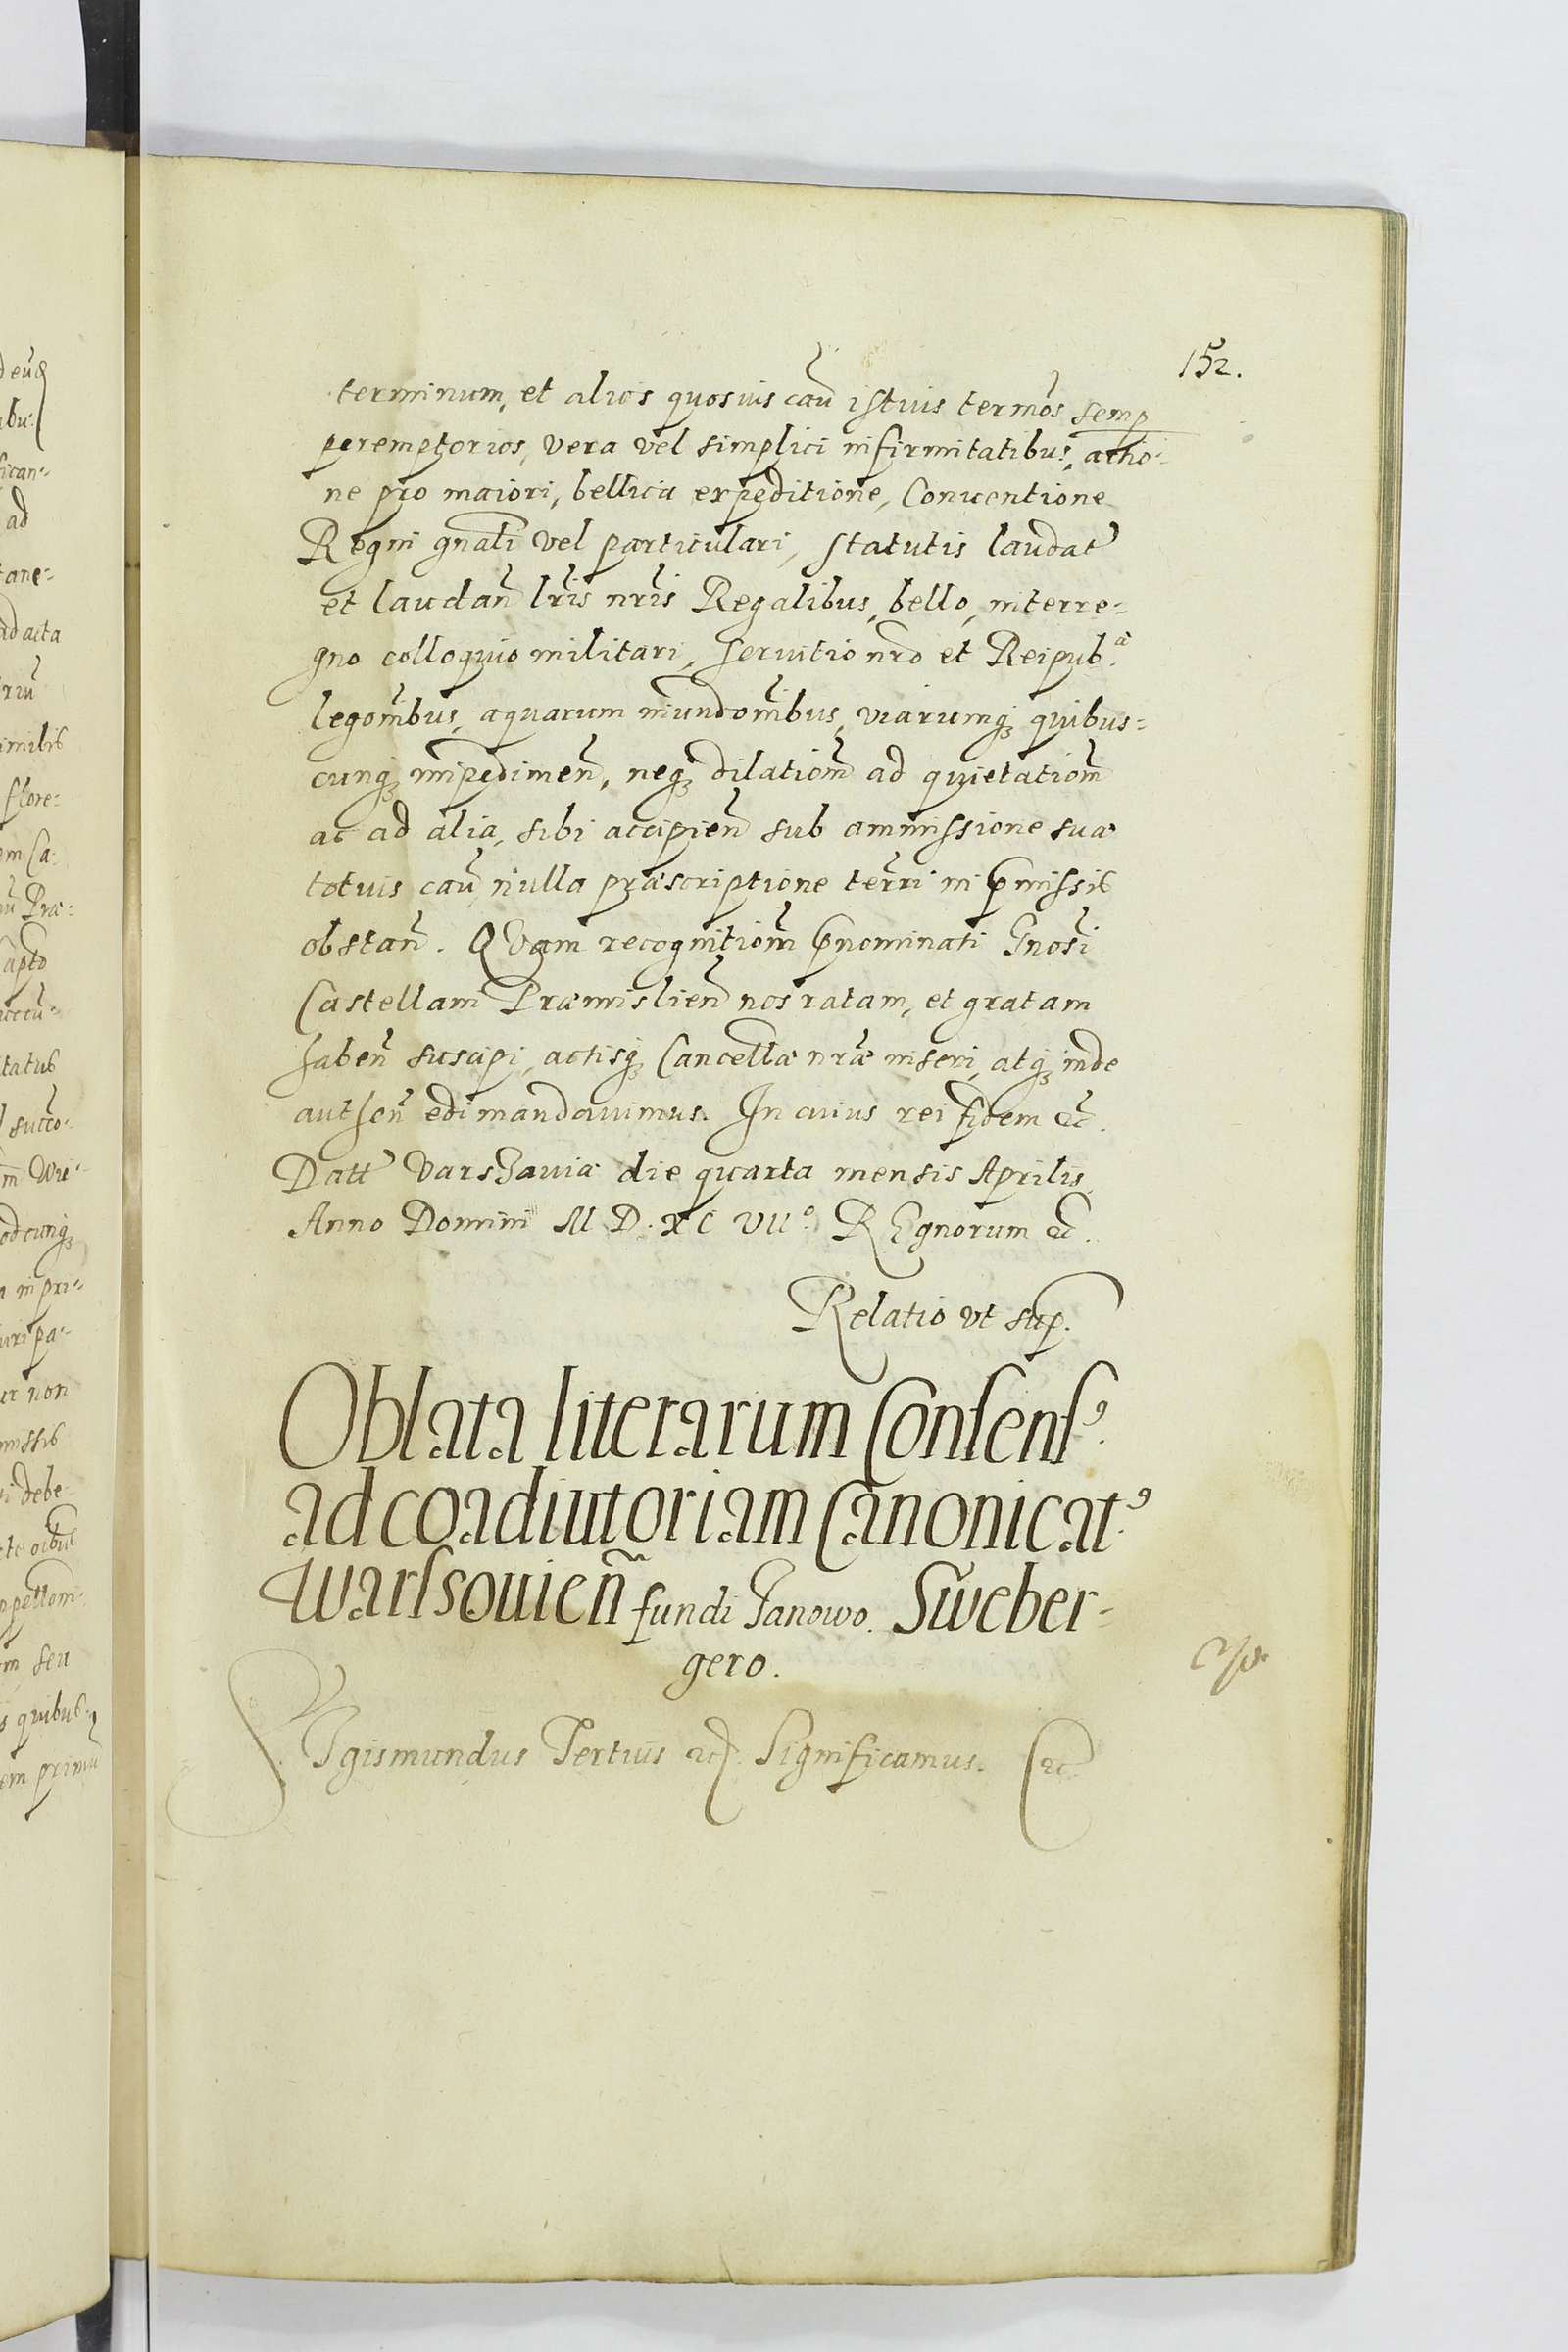 152.
terminum, et alios quosvis cau͂ istius termo͂s semp
peremptorios, vera vel simplici infirmitatibus, actio-
ne pro maiori, bellica expeditione, Conventione
Regni gn͂ali vel particulari, statutis laudat
et laudan͂ lr͂is nr͂is Regalibus, bello, interre=
gno colloquio militari, servitio nr͂o et Reipub.ᵃ
legom͂bus, aquarum inundom͂bus, viarumq; quibus=
cunq; impedimen͂, neq; dilatiom͂ ad quietatiom͂
ac ad alia, sibi accipien͂ sub ammissione suæ
totius cau͂, nulla præscriptione ter͂ri in p͂missis
obstan͂. QVam recognitiom͂ p͂nominati Gn͂osi
Castellani Præmislien͂ nos ratam, et gratam
haben͂ suscipi, actisq; Cancellæ nr͂æ inseri, atq; inde
authen͂ edi mandavimus. In cuius rei fidem &c.
Datt Varshaviæ die quarta mensis Aprilis,
Anno Domini M D. XC VIIº. REgnorum &c.
Relatio vt sup.
Oblata literarum Consens⁹
ad coadiutoriam Canonicat⁹
Warssovien͂ fundi Janowo. Sweber-
gero.
SIgismundus Tertius &c. Significamus. &c